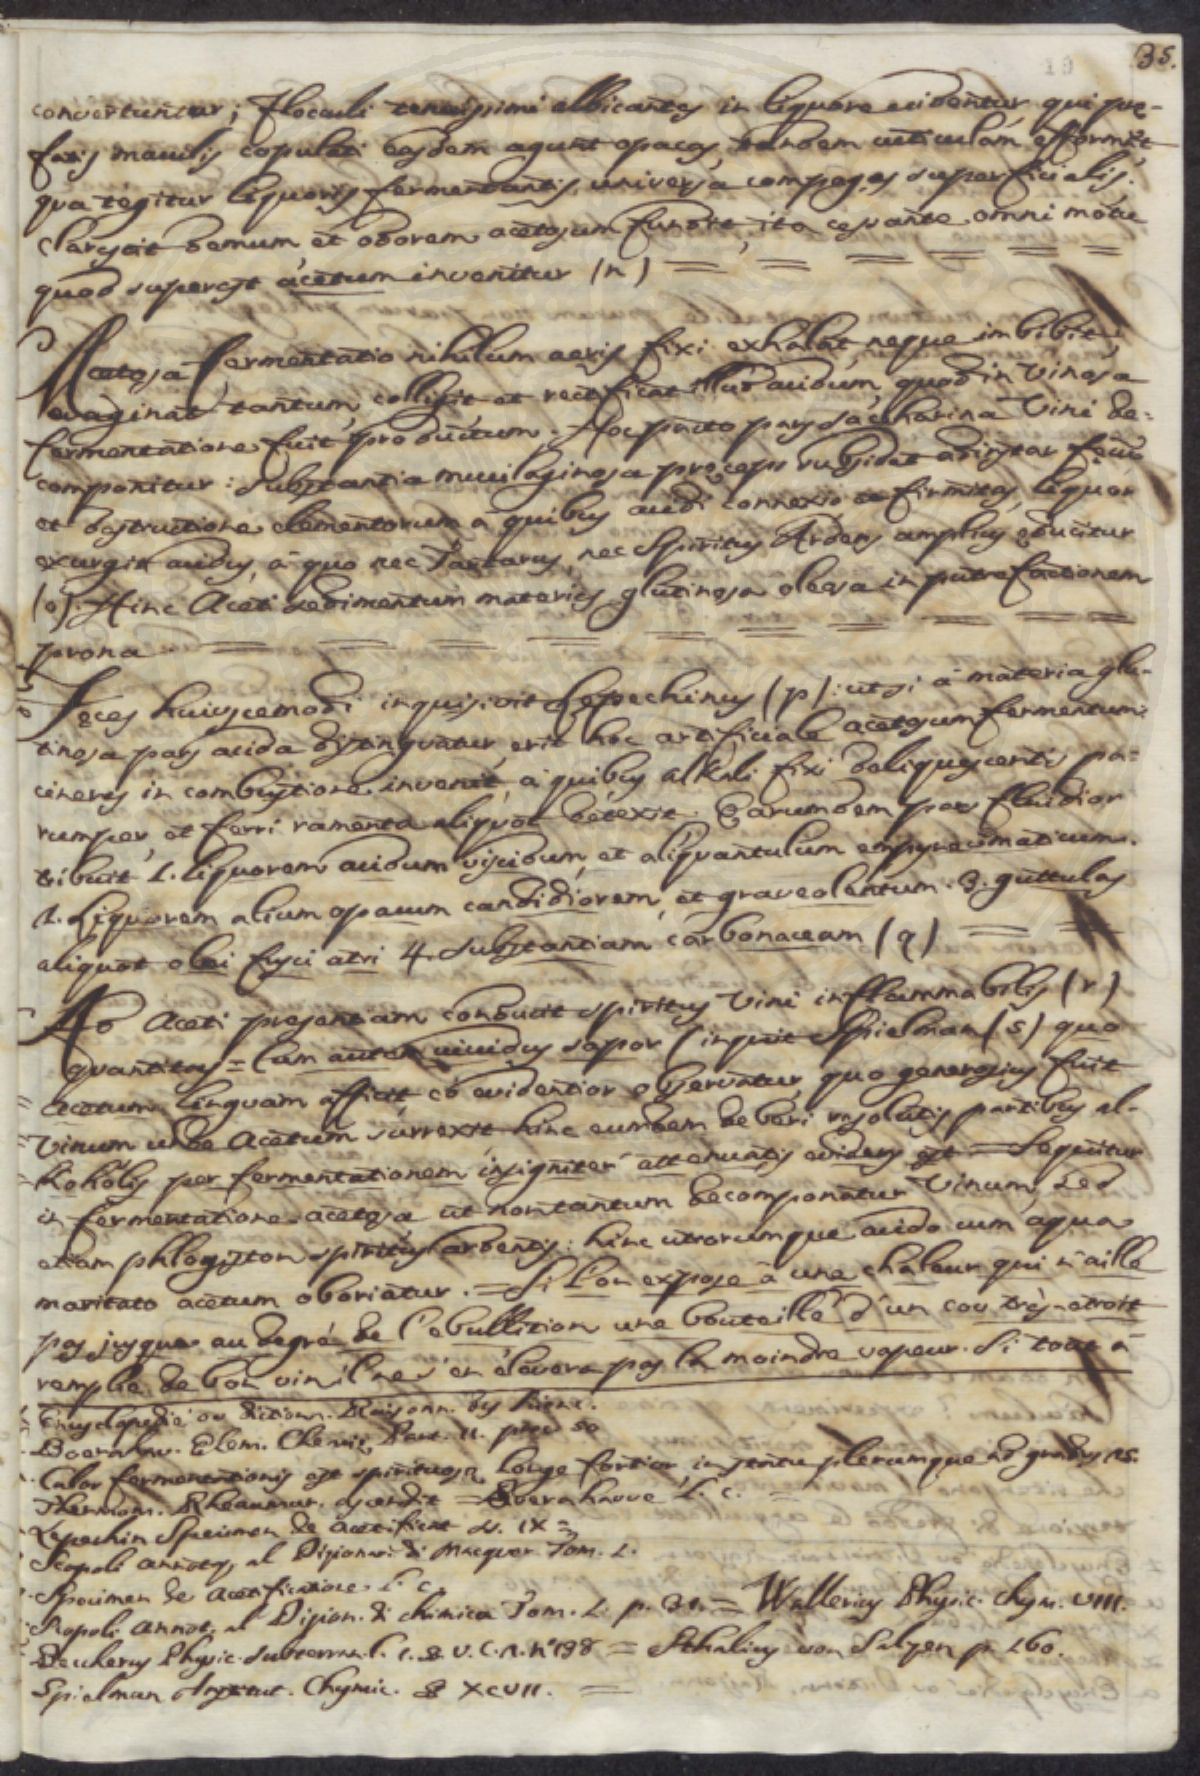 35.
19
convertuntur; Floculi tenuissimi albicantes in liquore evidentur, qui præ-
fatis maculis copulati easdem agunt opacas, tandem cuticulam efformant
qua tegitur liquoris fermentantis universa compages superficialis.
Clarescit demum, et odorem acetosum fundit, ita cessante omni motu
quod superest acetum invenitur (n)
Acetosa Fermentatio nihilum aeris fixi exhalat, neque imbibit;
evaginat tantum, colligit et rectificat illud acidum, quod in vinosa
fermentatione fuit productum. Hoc pacto pars saccharina Vini de=
componitur: substantia mucilaginosa præceps subsidet
et destructione elementorum a quibus acidi connexio et firmitas, liquor
exurgit acidus, à quo nec Tartarus, nec Spiritus Ardens amplius educitur
(o). Hinc Aceti sedimentum materies glutinosa oleosa in putrefactionem
prona
Feces huiuscemodi inquisivit Lepechinus (p): utsi à materia glu-
tinosa pars acida distinguatur, erit hoc artificiale acetosum fermentum.
cineres in combustione invenit, a quibus alkali fixi deliquescentis pa=
rumper, et ferri ramenta aliquot detexit. Earumdem pars fluidior
tribuit 1. liquorem acidum viscidum, et aliquantulum empyreumaticum.
2. Liquorem alium opacum candidiorem, et graveolentum. 3. guttulas
aliquot olei fusci atri 4. substantiam carbonaceam (q)
Ad Aceti presentiam conducit spiritus Vini inflammabilis (r)
quantitas = Cum autem vividus sapor (inquit Spielman (s) quo
Acetum linguam afficit eo evidentior observatur, quo generosius fuit
Vinum unde Acetum surrexit hinc eumdem deberi resolutis partibus al-
kohólis per fermentationem insigniter attenuatis evidens est = Sequitur
in fermentatione acetosa ut non tantum decomponatur Vinum, sed
etiam phlogiston spiritus ardentis: hinc utrorumque acido cum aqua
maritato acetum oboriatur. = Si l'on expose à une chaleur qui n'aille
pas jusque au degré de l'ebullition une bouteille d'un cou très-etroit
remplie de bon vin il ne s'en élevera pas la moindre vapeur. Si tout à
Encyclopedie ou diction. Raisonn. des scienc.
Boerahav. Elem. Chemiæ Part. 11. proc 50
Calor fermentationis est spirituosa longe fortior, instentu plerumque ad gradus 25.
Thermom. Rheaumur. ascendit = Boverahavve l. c. =
Lepechin Specimen de acetificat §. IX =
Scopoli annotaz. al Dizionar. di Macquer Tom. 1.
Specimen de acetificatione l. c.
Scopoli annot. al Dizion. di chimica Tom. 1. p. 31. = Wallerius Physic. chym. VIII.
Beccherus Physic. Subterran. l. 1. S. V. C. 11. n° 198 = Sthalius von Salzen p. 160.
Spielman Instrut. Chymic. § XCVII. =